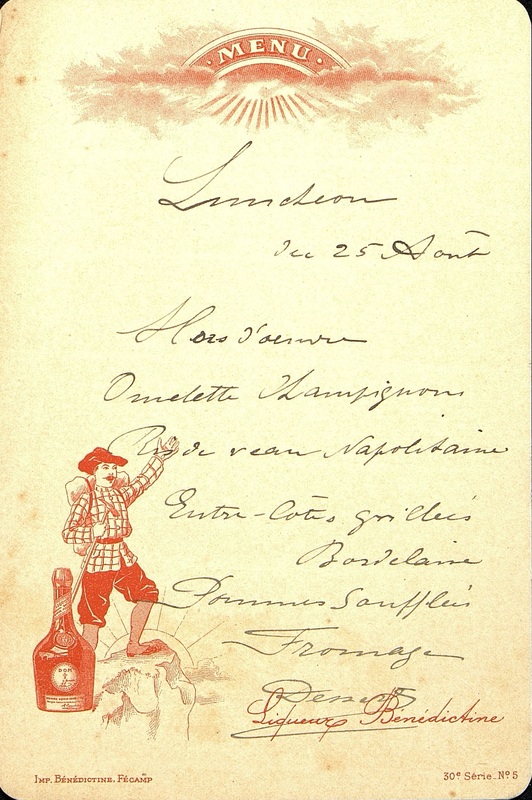 MENU
Luncheon
du 25 Août
Hors d'oeuvre
Omelette Champignons
Ris de veau Napolitaine
Entre-Côtes grillés
Bordelaise
Pommes Soufflés
Fromage
Desserts
Liqueur Bénédictine
DOM
IMP. BÉNÉDICTINE. FÉCAMP
30e Série. No 5